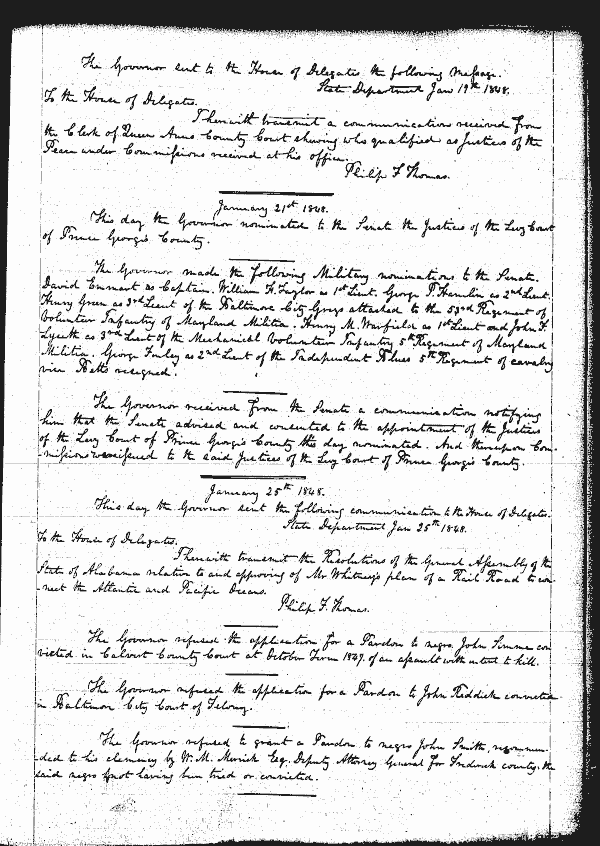 The Governor sent to the House of Delegates the following Message.
State Department Jan 19th 1848.
To the House of Delegates.
I herewith transmit a communication received from
the Clerk of Queen Anns County Court shewing who qualified as Justices of the
Peace under Commissions received at his office.
Philip F Thomas.
January 21st 1848.
This day the Governor nominated to the Senate the Justices of the Levy Court
of Prince George's County.
The Governor made the following Military nominations to the Senate.
David Emmart as Captain. William H. Taylor as 1st Lieut. George T. Hamlin as 2nd Lieut.
Henry Green as 3rd Lieut of the Baltimore City Greys attached to the 53rd Regiment of
Volunteer Infantry of Maryland Militia. Henry M. Warfield as 1st Lieut and John F.
as 3rd Lieut of the Mechanical Volunteer Infantry 5th Regiment of Maryland
Militia. George Finley as 2nd Lieut of the Independent Blues 5th Regiment of cavalry
vice Betts resigned.
The Governor received from the Senate a communication notifying
him that the Senate advised and consented to the appointment of the Justices
of the Levy Court of Prince George's County this day nominated. And thereupon Com-
missions were issued to the said Justices of the Levy Court of Prince George's County.
January 25th 1848.
This day the Governor sent the following communication to the House of Delegates.
State Department Jan 25th 1848.
To the House of Delegates.
I herewith transmit the Resolutions of the General Assembly of the
State of Alabama relation to and approving of Mr Whitney's plan of a Rail Road to con-
nect the Atlantic and Pacific Oceans.
Philip F. Thomas.
The Governor refused the application for a Pardon to negro John Simms con
victed in Calvert County Court at October Term 1847. of an assault with intent to kill.
The Governor refused the application for a Pardon to John Reddick convicted
in Baltimore City Court of Felony.
The Governor refused to grant a Pardon to negro John Smith, recommen-
ded to his clemency by W. M. Merrick Esq. Deputy Attorney General for Frederick county. the
said negro not having been tried or convicted.